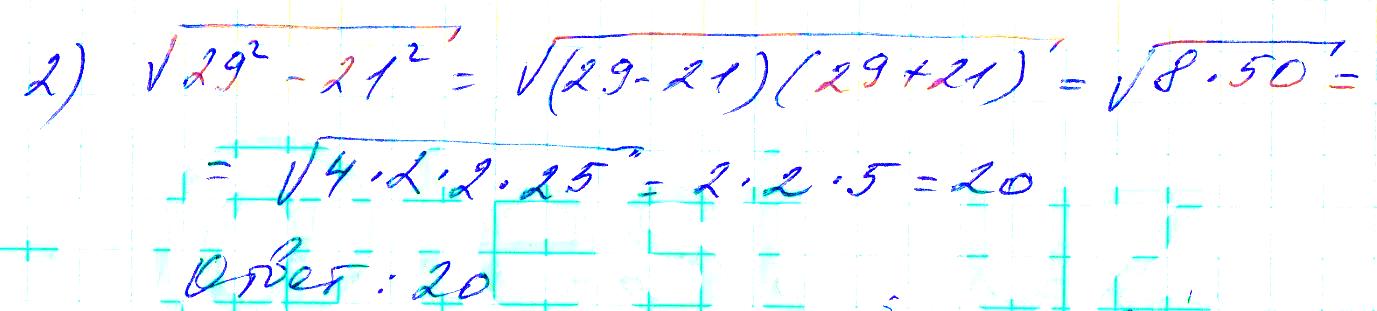 2) √(29² - 21²) = √((29-21)(29+21)) = √(8·50) =
= √(4·2·2·25) = 2·2·5 = 20
Ответ: 20